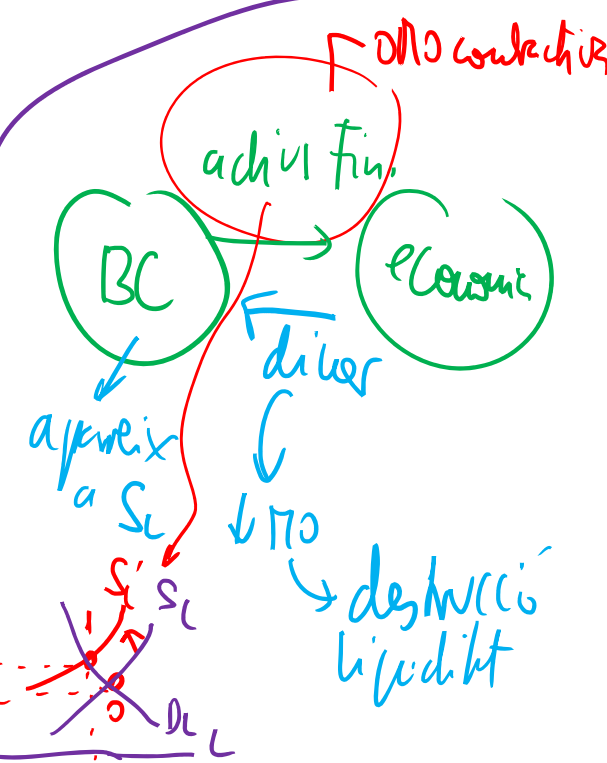 OMO contractiva
actius Fin.
BC
economia
diner
apareix
a SL
↓ MO
destrucció
liquiditat
S'L
SL
1
0
DL
L